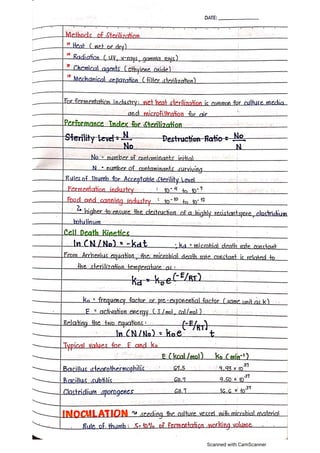 DATE:
Methods of Sterilization
Heat (wet or dry)
Radiation (UV, x-rays, gamma rays)
Chemical agents (ethylene oxide)
Mechanical separation (filter sterilization)
For fermentation industry: wet heat sterilization is common for culture media
and microfiltration for air
Performance Index for Sterilization
Sterility Level = N/No Destruction Ratio = No/N
No = number of contaminants initial
N = number of contaminants surviving
Rules of thumb for Acceptable Sterility Level
Fermentation industry : 10⁻⁴ to 10⁻³
Food and canning industry : 10⁻¹⁰ to 10⁻¹²
higher to ensure the destruction of a highly resistant spore, clostridium
botulinum
Cell Death Kinetics
ln (N/No) = -kdt ; kd = microbial death rate constant
From Arrhenius equation, the microbial death rate constant is related to
the sterilization temperature as:
kd = koe^(-E/RT)
ko = frequency factor or pre-exponential factor (same unit as k)
E = activation energy (J/mol, cal/mol)
Relating the two equations:
ln (N/No) = koe^(-E/RT) t
Typical values for E and ko
E (kcal/mol) ko (min⁻¹)
Bacillus stearothermophilis 67.5 4.93 x 10³⁷
Bacillus subtilis 68.7 9.50 x 10³⁷
Clostridium sporogenes 68.7 16.6 x 10³⁷
INOCULATION ~ seeding the culture vessel with microbial material
Rule of thumb: 5-10% of fermentation working volume
Scanned with CamScanner